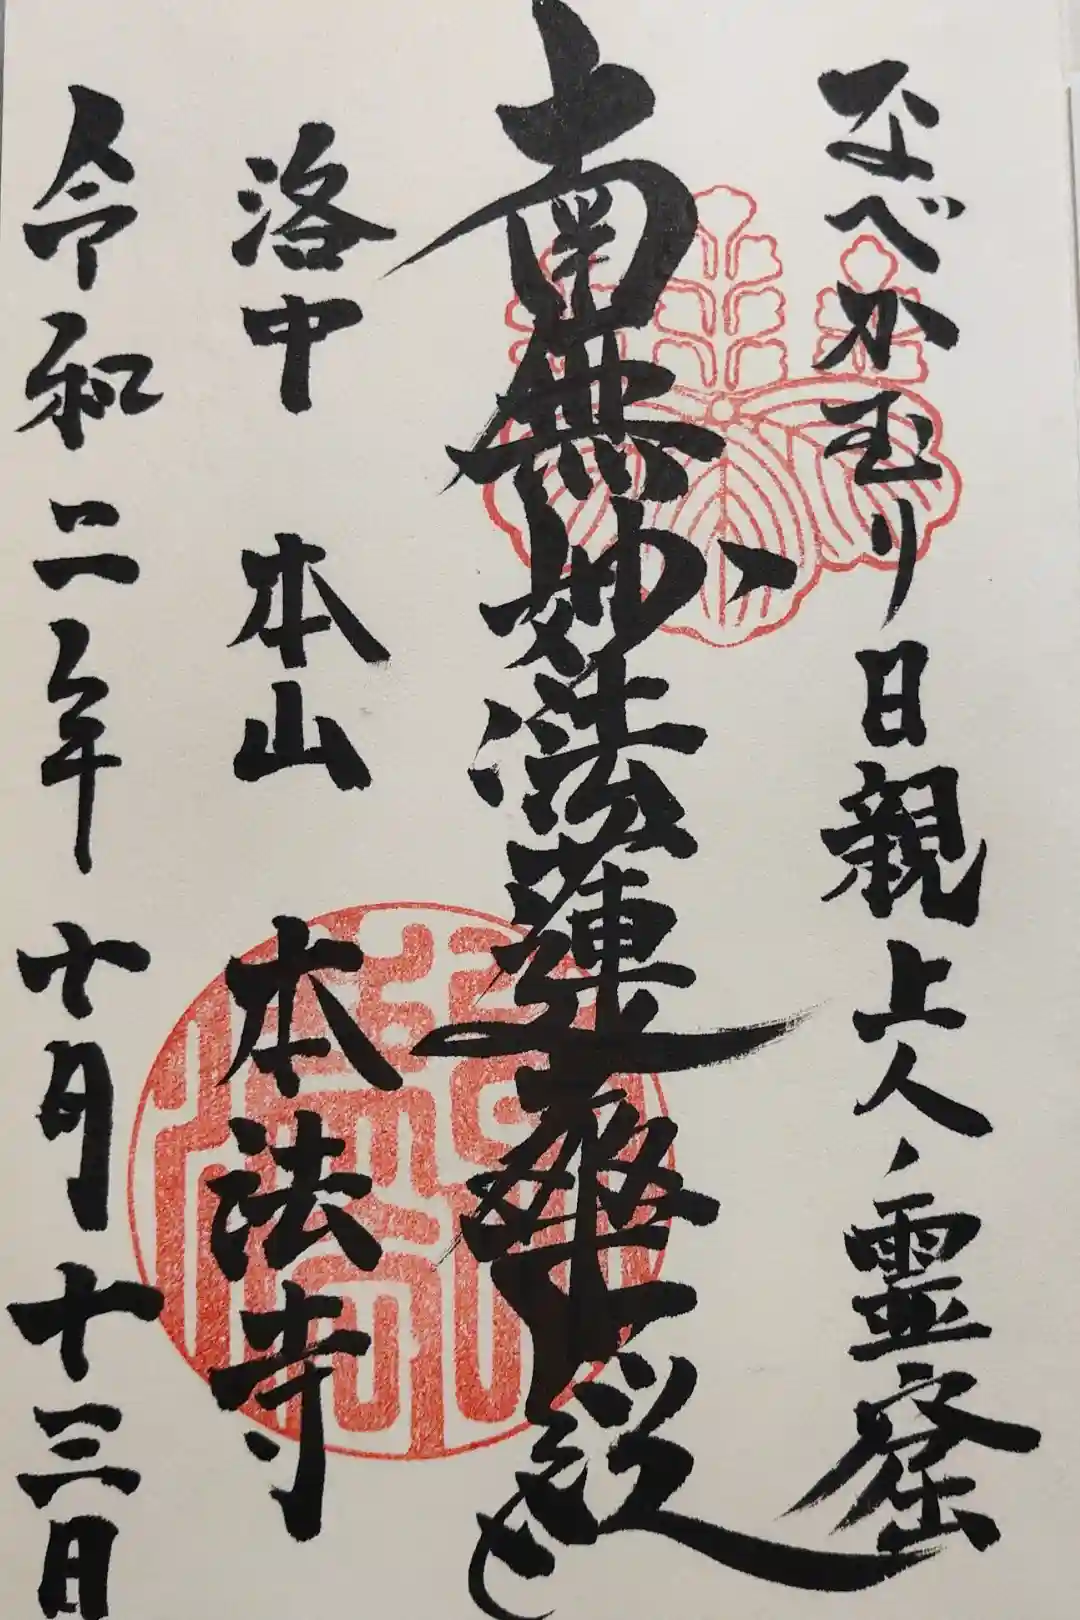 なべかむり日親上人ノ霊窟
南無妙法蓮華経
洛中 本山 本法寺
令和二年 十月 十三日